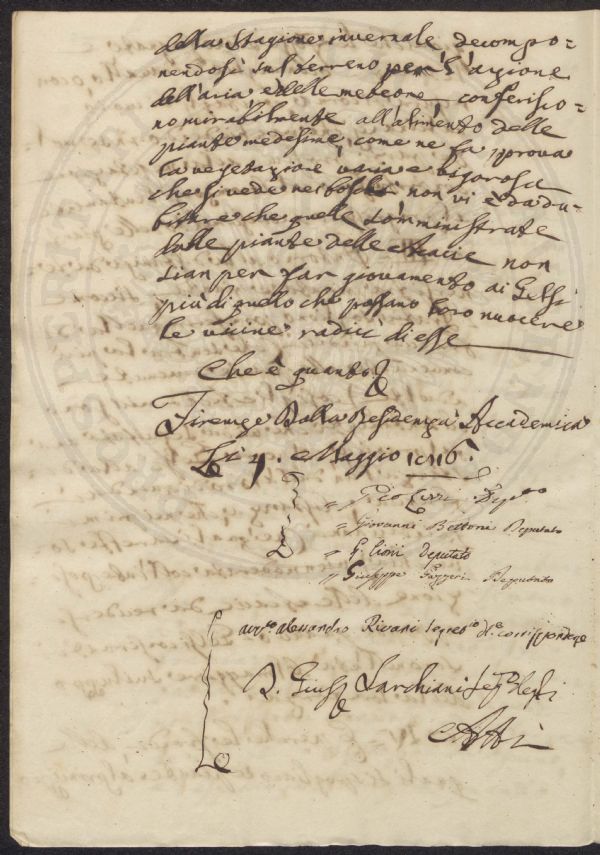 della Stagione invernale decompo=
nendosi sul terreno per l'azione
dell'aria e delle meteore, conferisco=
no mirabilmente all'alimento delle
piante medesime, come ne fa prova
la vegetazione varia e vigorosa
che si vede nei boschi non vi è da du=
bitare che quelle somministrate
dalle piante delle Acacie non
sian per far giovamento ai Gelsi
più di quello che possano loro nuocere
le vicine radici di esse
Che è quanto
Firenze Dalla Residenza Accademica
Li Maggio 1816.
= Deputato
= Giovanni Bettoni Deputato
= G. Cioni Deputato
= Giuseppe Gazzeri Deputato
Avv.to Alessandro Rivani Segret.io d.e Corrispondenze
D. Gius.e Sarchiani Seg.rio degli
Atti